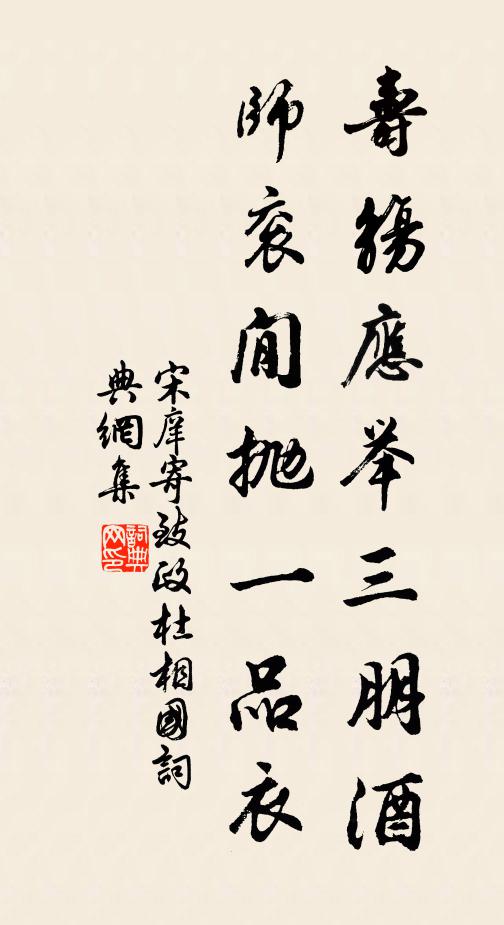 壽觴應举三朋酒
師衮閒抛一品衣
宋庠寄致政杜相國詞
典網集
詞典網印